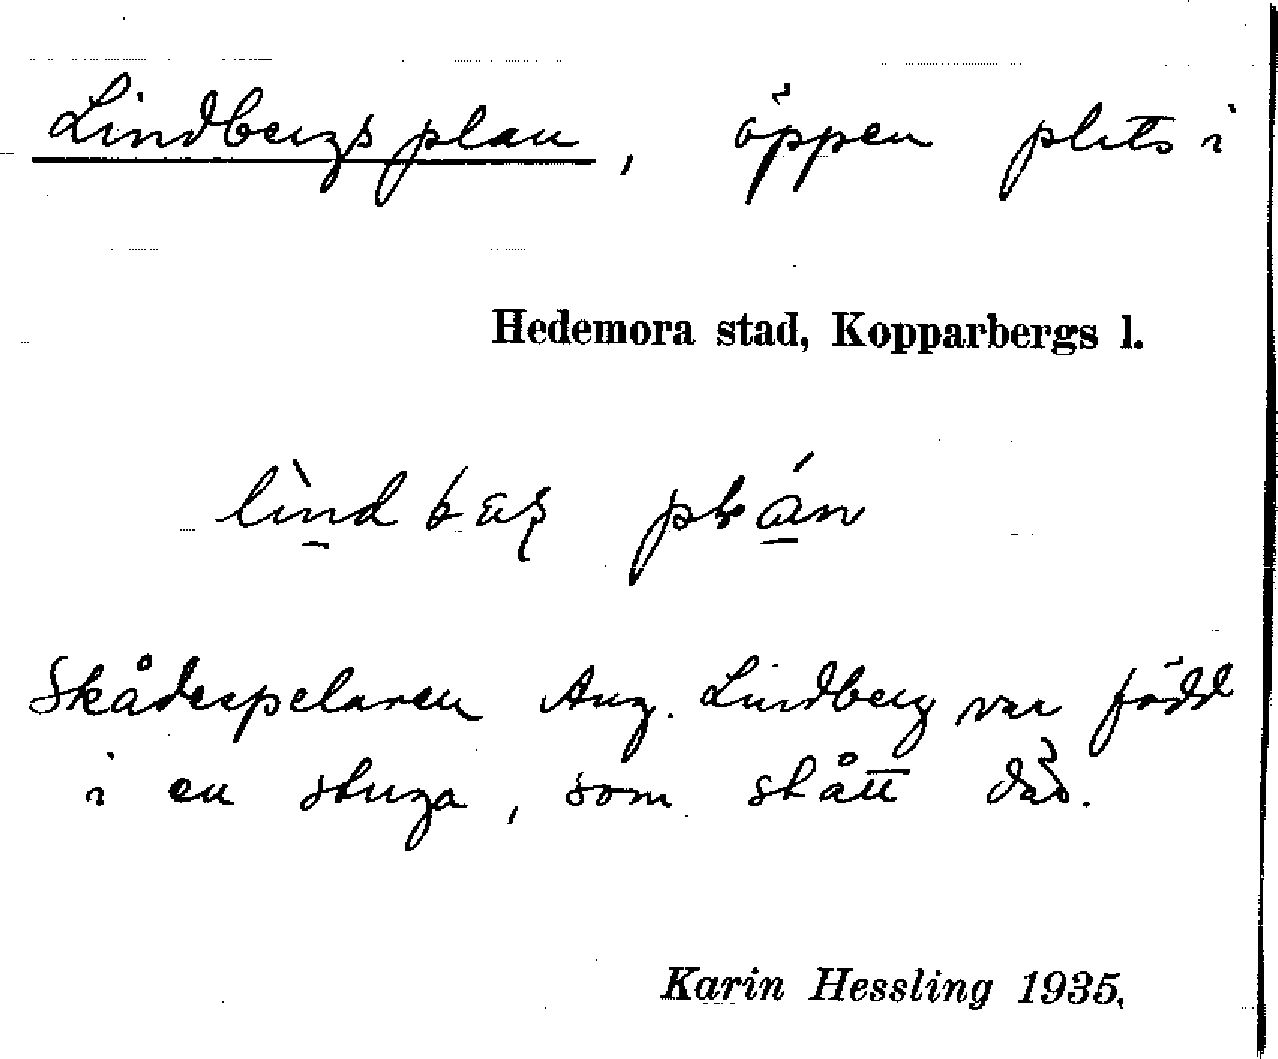 Lindbergs plan, öppen plats i
Hedemora stad, Kopparbergs l.
Skådespelaren Aug. Lindberg var född
i en stuga, som stått där.
Karin Hessling 1935.